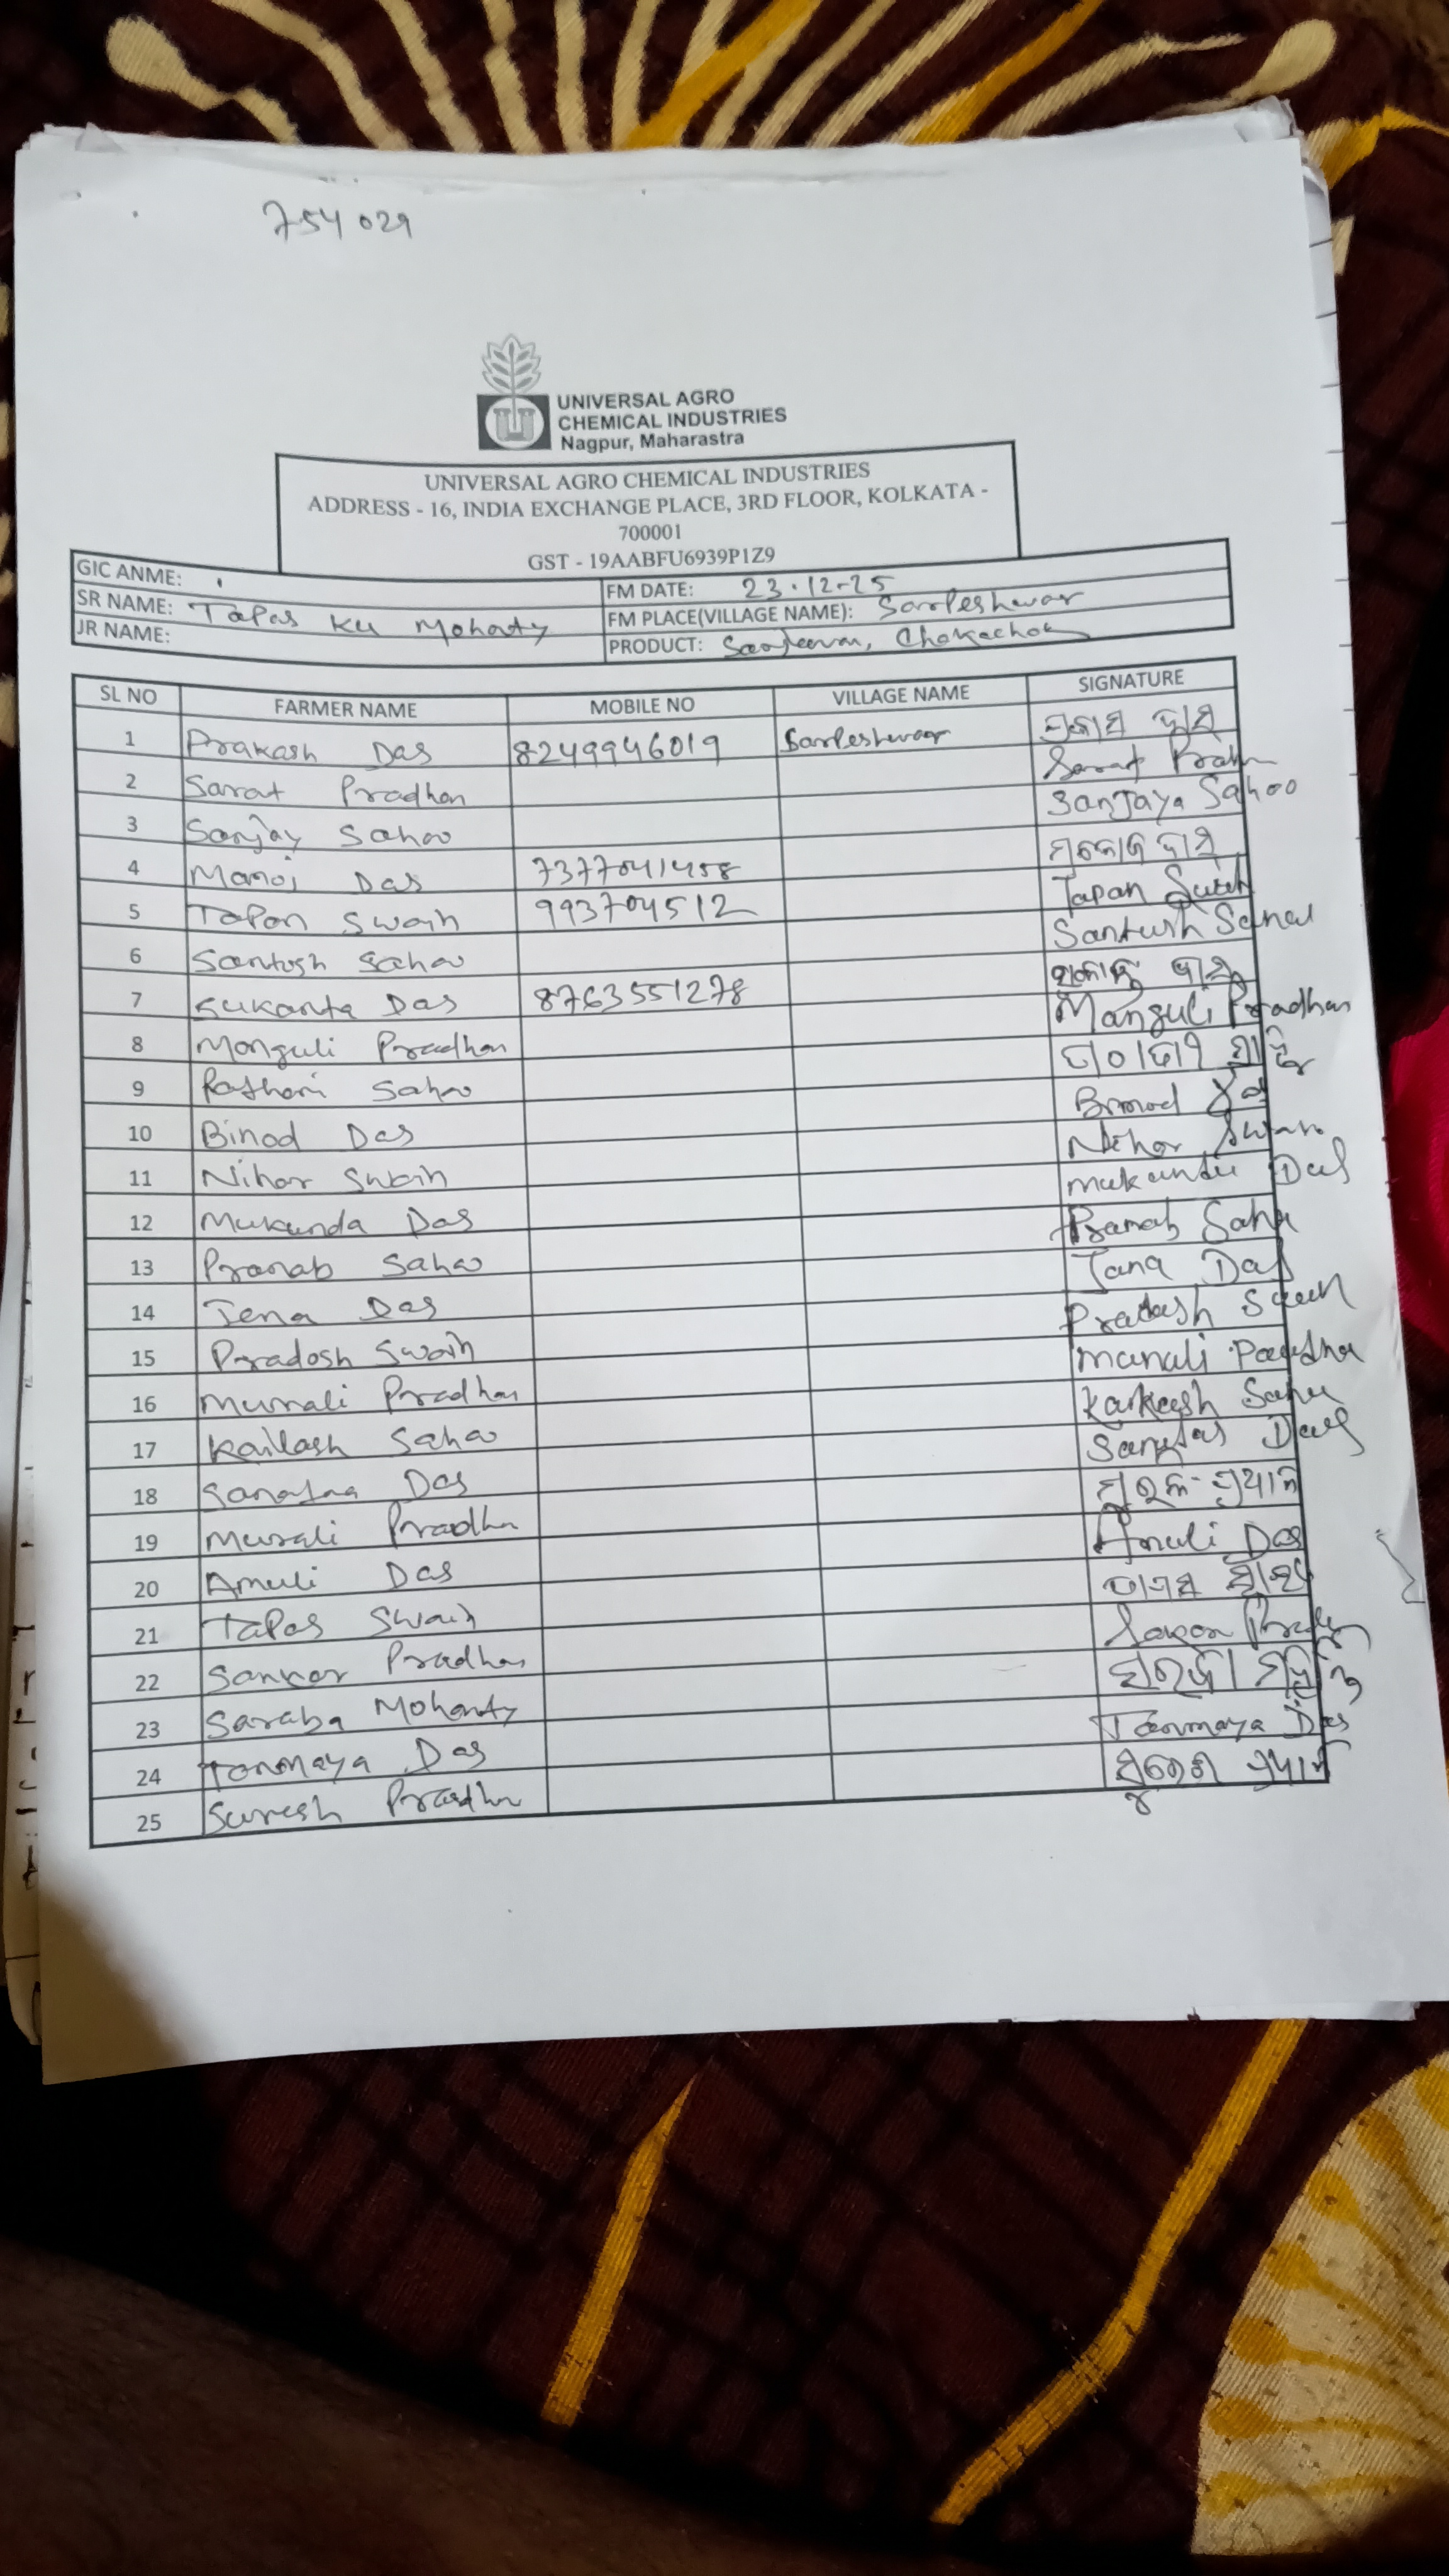 754029
UNIVERSAL AGRO
CHEMICAL INDUSTRIES
Nagpur, Maharastra
UNIVERSAL AGRO CHEMICAL INDUSTRIES
ADDRESS - 16, INDIA EXCHANGE PLACE, 3RD FLOOR, KOLKATA -
700001
GST - 19AABFU6939P1Z9
GIC ANME: FM DATE: 23.12-25
SR NAME: Tapas Ku Mohanty FM PLACE(VILLAGE NAME): Sarleshwar
JR NAME: PRODUCT:
SL NO FARMER NAME MOBILE NO VILLAGE NAME SIGNATURE
1 Prakash Das 8249946019 Sarleshwar ପ୍ରକାଶ ଦାସ
2 Sarat Pradhan Sarat
3 Sanjay Sahoo Sanjaya Sahoo
4 Manoj Das 7377041458 ମନୋଜ ଦାସ
5 Tapan Swain 993704512 Tapan
6 Santosh Sahoo Santush
7 Sukanta Das 8763551278 ଦାସ
8 Manguli Pradhan Manguli Pradhan
9 Sahoo
10 Binod Das Binod
11 Nihar Swain Nihar Swain
12 Mukunda Das Mukunda Das
13 Pranab Sahoo Pranab Sahu
14 Jena Das Jana Das
15 Pradosh Swain Pradosh
16 Murali Pradhan
17 Kailash Sahoo Sahu
18 Das Das
19 Murali Pradhan ପ୍ରଧାନ
20 Amuli Das Amuli Das
21 Tapas Swain ତାପସ ସ୍ୱାଇଁ
22 Sankar Pradhan
23 Saraba Mohanty
24 Tanmaya Das Tanmaya Das
25 Suresh Pradhan ସୁରେଶ ପ୍ରଧାନ